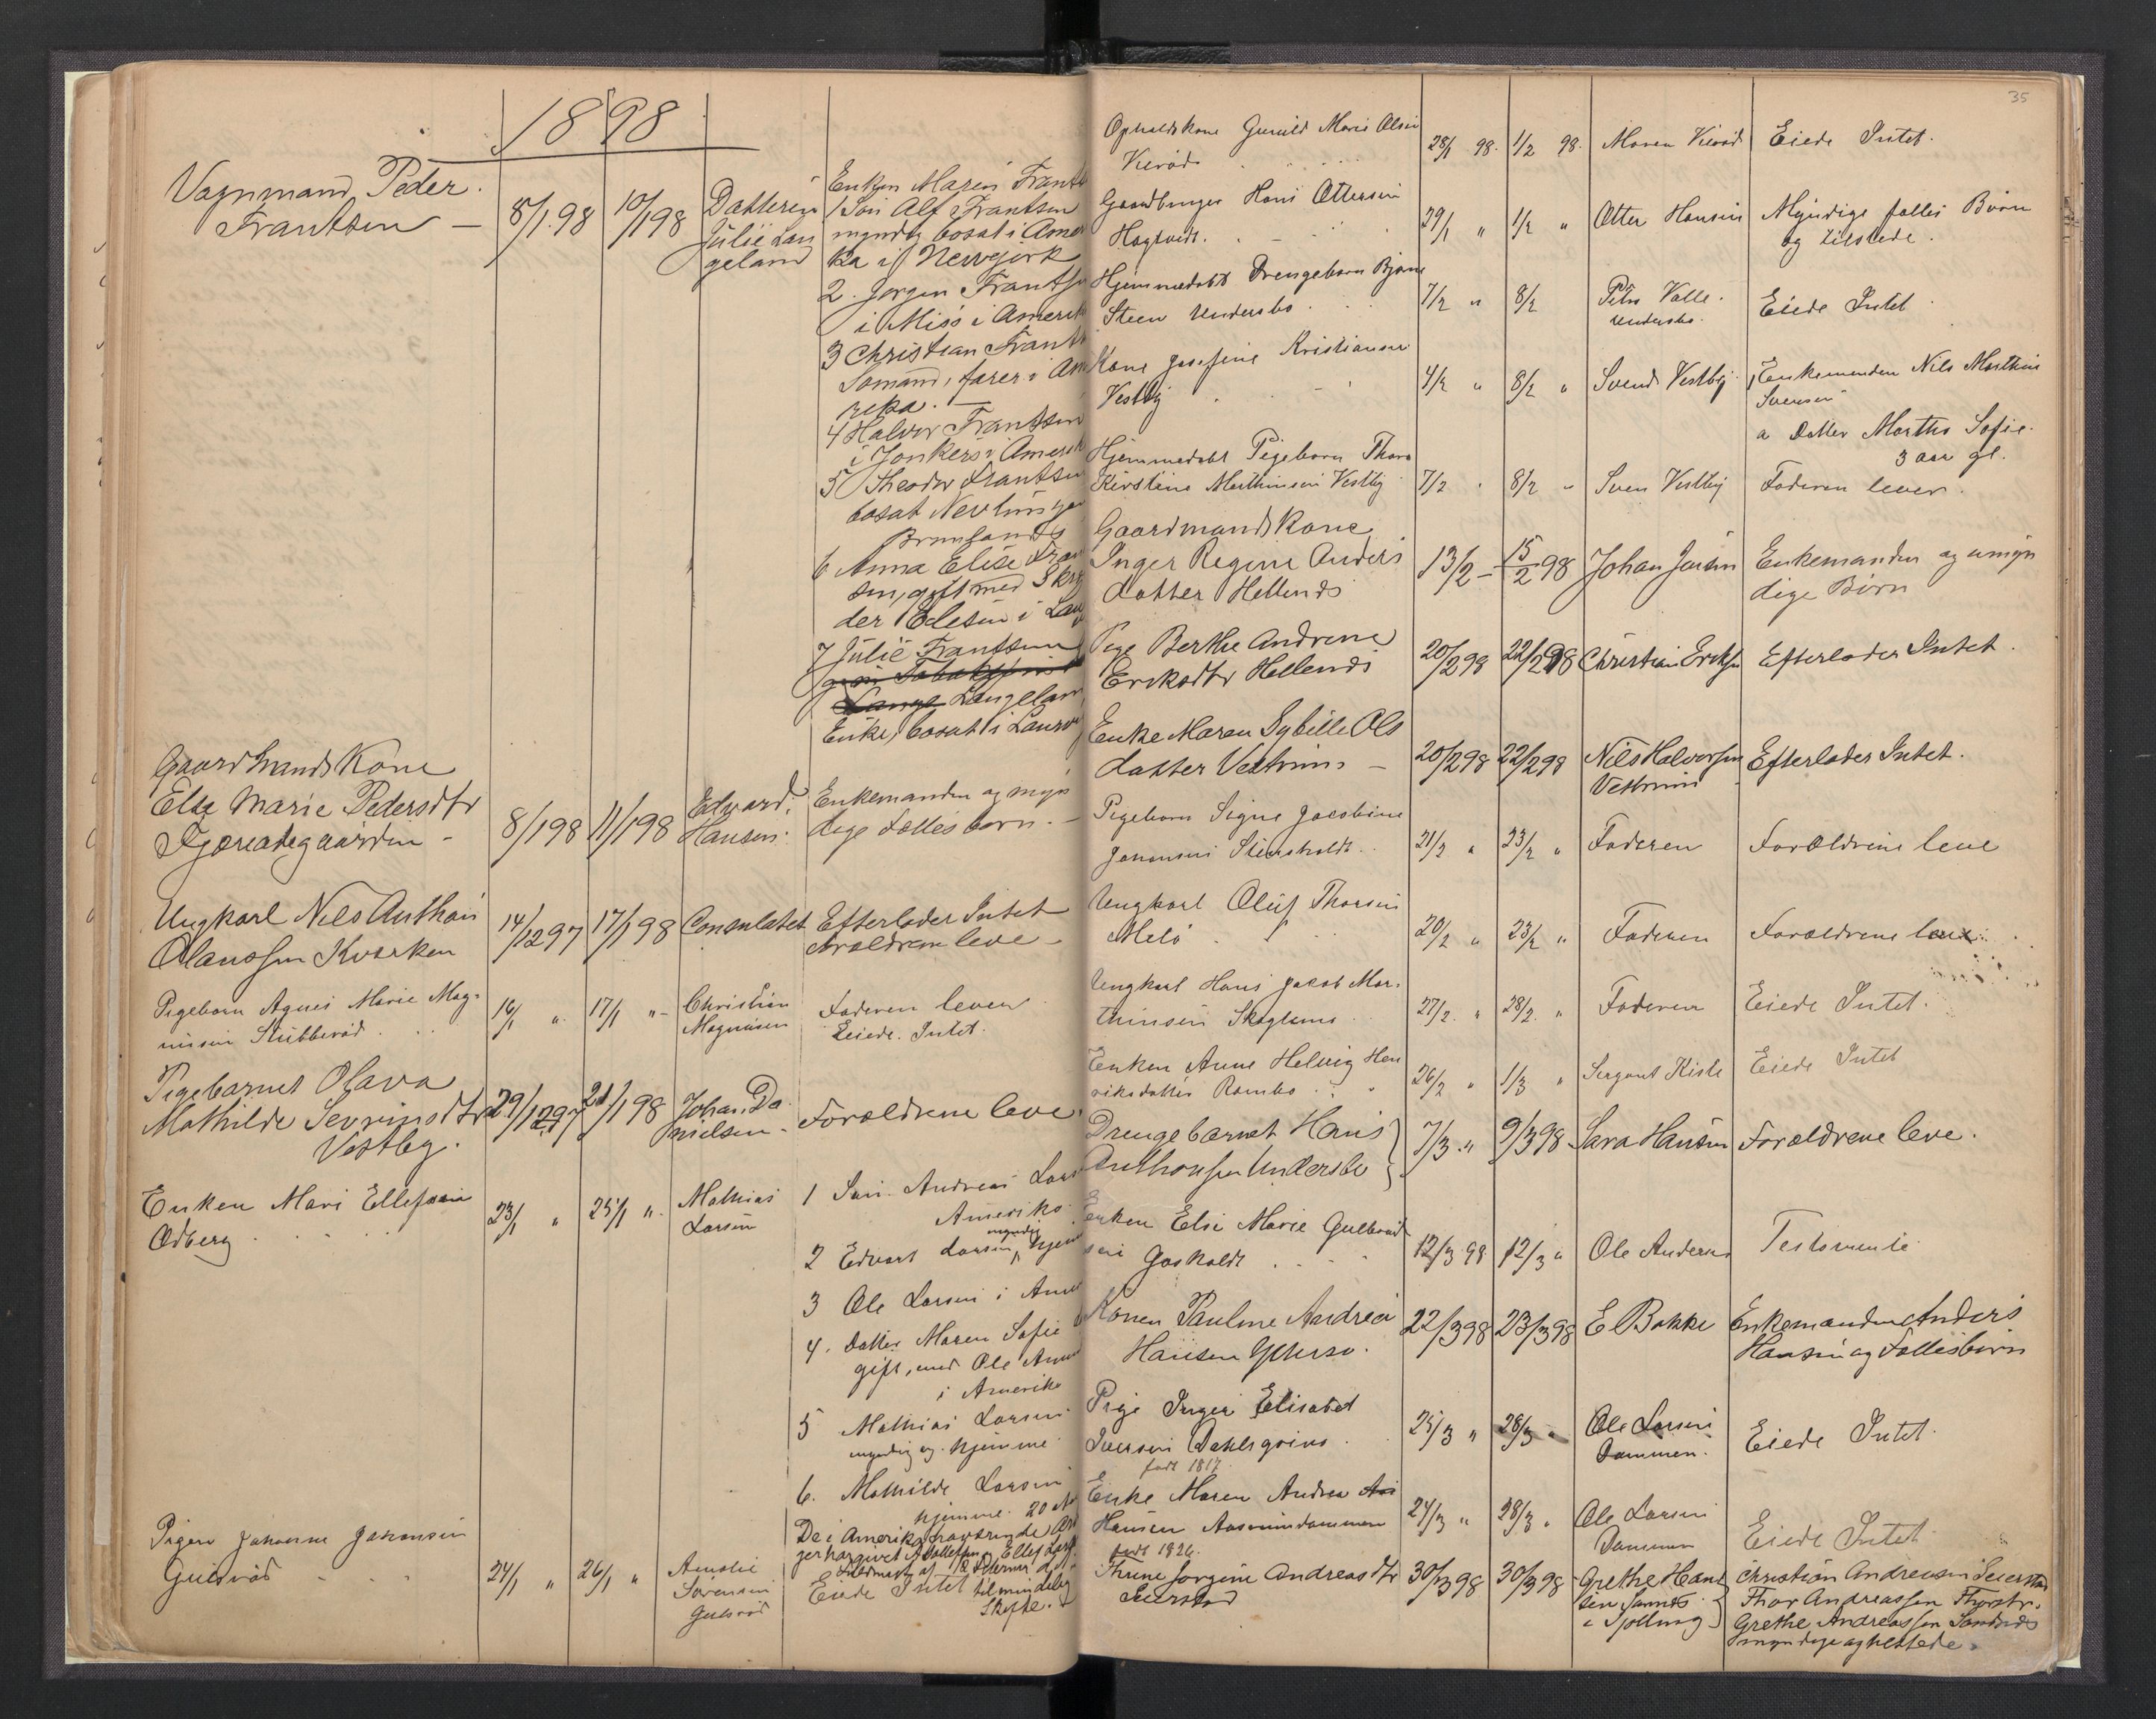 1898
Vognmand, Peder
Frantsen — 8/1.98 10/1 98 Datteren
Julie Lan
geland
Enken Maren Frants
1 Søn Alf Frantsen
myndig bosat i Ame
ka i Newyork
2. Jørgen Frants
i Miss i Amerik
3 Christian Frants
Sømand, farer i Am
reka. —
4 Halvor Frantsen
i Jonkers i Amerik
5 Theodor Frantsen
bosat Nevlung
Brunlanæs
6 Anna Elise Fran
sen, gift med Skr
der Edlesen i Lau
7 Julie Frantsen
Lange Langelan
Enke, bosat i Laurv
Gaardmands Kone
Else Marie Pedersdtr
Fjæreadegaarden - 8/1 98 11/1 98 Edvard
Hansen.
Enkemanden og myn
dige Fællesbørn. —
Ungkarl Nils Anthon
Olaussen Kvarken 14/12 97 17/1 98 Consulatet Efterlader Intet
Forældrene leve -
Pigebarn Agnes Marie Mag-
nusen Stubberød 16/1 " 17/1 " - Christian
Magnusen
Faderen lever
Eiede Intet.
Pigebarnet Olava
Mathilde Sevrinsdtr 29/12 97 21/1 98 Johan Da
nielsen - Forældrene leve.
Vestby.
Enken Mari Ellefsen
Ødberg 23/1 " 25/1 ". Mathias
Larsen
1 Søn Andreas Lars
Amerika
2 Edvart Larsen, myndig hjem
3 Ole Larsen i Ame
4. Datter Maren Sofie
gift, med Ole
i Amerika
5 Mathias Larsen
myndig og hjemme
6. Mathilde Larsen
hjemme. 20 a
De i Amerika
til mindelig
Skifte.
Pigen Johanne Johansen
Gulsrød 24/1 " 26/1 " Amalie
Sørensen
Gulsrød
Eiede Intet
35
Opholdskone Gunild Marie Olsen
Vierød 28/1 98. 1/2 98. Maren Vierød Eiede Intet.
Gaardbruger Hans Ottersen
Hagtvedt. 29/1 " 1/2 " Otter Hansen Myndige fælles Børn
og tilstede.
Hjemmedøbt Drengebarn Bjarne
Steen Undersbo 7/2 " 8/2 Petra Valle.
Undersbo.
Eiede Intet
Kone Josefine Kristiansen
Vestby 4/2 " 8/2 " Svend Vestby. Enkemanden Nils Marthin
Svensen
a Datter Martha Sofie.
3 aar gl.
Hjemmedøbt Pigebarn Thora
Kirstine Marthinsen Vestby 7/2 " 8/2 " Sven Vestby Faderen lever.
Gaardmands Kone
Inger Regine Anders
datter Hellends 13/2 - 15/2 98 Johan Jensen Enkemanden og umyn
dige Børn
Pige Berthe Andrene
Eriksdtr Hellends 20/2 98 22/2 98 Christian Eriksen Efterlader Intet.
Enke Maren Sybille Ols
datter Vestrum - 20/2 98 22/2 98 Nils Halvorsen
Vestrum
Efterlader Intet.
Pigebarn Signe Jacobine
Johansen Stensholdt. 21/2 " 23/2 " Faderen Forældrene leve
Ungkarl Oluf Thorsen
Melø 20/2 " 23/2 " Faderen Forældrene leve.
Ungkarl Hans Jacob Mar-
thinsen Skoglund 27/2. " 28/2. " Faderen Eiede Intet.
Enken Anne Helvig Hen
riksdatter Rambo 26/2 " 1/3 " Sergant Kiste Eiede Intet
Drengebarnet Hans
Anthonsen Undersbo 7/3 " 9/3 98 - Sara Hansen Forældrene leve.
Enken Else Marie Gulbrand
sen Gosholdt 12/3 98 12/3 " Ole Anderss Testamente
Konen Pauline Andrea
Hansen Ytterso. 22/3 98 23/3 98 E Bakke Enkemanden Anders
Hansen og Fællesbørn
Pige Inger Elisabet
Iversen Dahlsgrind
født 1817
25/3 " 28/3 " Ole Larsen
Dammen. Eiede Intet.
Enke Maren Andrea
Hansen Aasrumdammen
født 1826.
24/3 " 28/3 " Ole Larsen
Dammen Eiede Intet
Thrine Jorgine Andreasdtr
Seierstad 30/3 98 30/3 98 - Grethe Han
sen Sannes
i Tjølling
Christian Andreasen Seiersta
Thor Andreassen
Grethe Andreassen
myndige og tilstede.